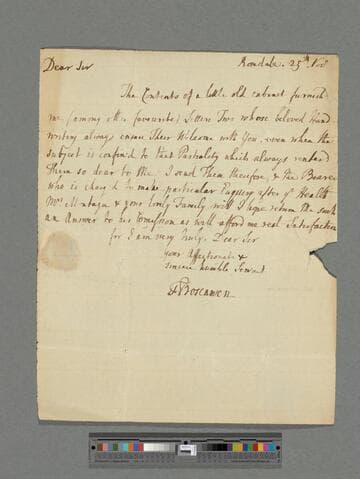 Dear Sir Rosedale. 25th Nov
The Contents of a little old cabinet furnish
me (among other favourite) Letters Two whose beloved Hand
writing always ensure Their Welcome with You, even when the
subject is confin'd to that Partiality which always renders
Them so dear to Me: I send Them therefore, & the Bearer
who is charg'd to make particular Enquiry after ye Health
Mrs Montagu & your lovely Family will I hope return me such
an Answer to his Commission as will afford me real Satisfaction
for I am very truly, Dear Sir
your Affectionate &
sincere humble Servant
FBoscawen